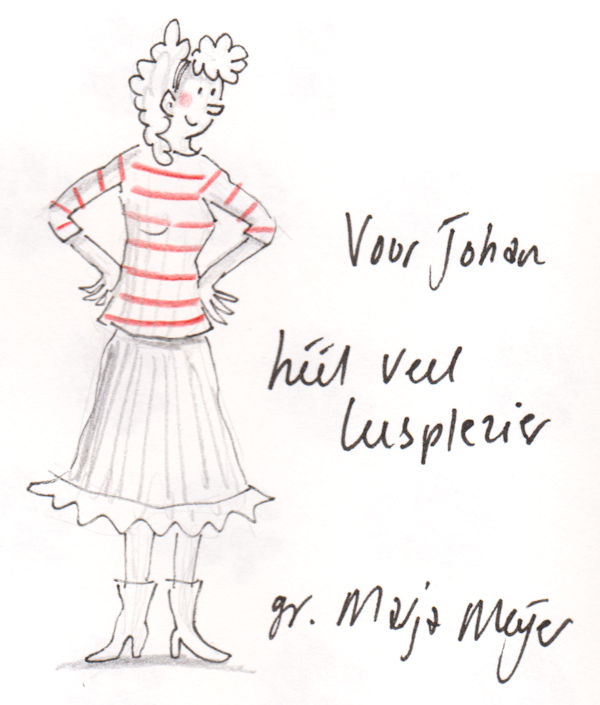 Voor Johan
héél veel
leesplezier
gr. Marja Meijer